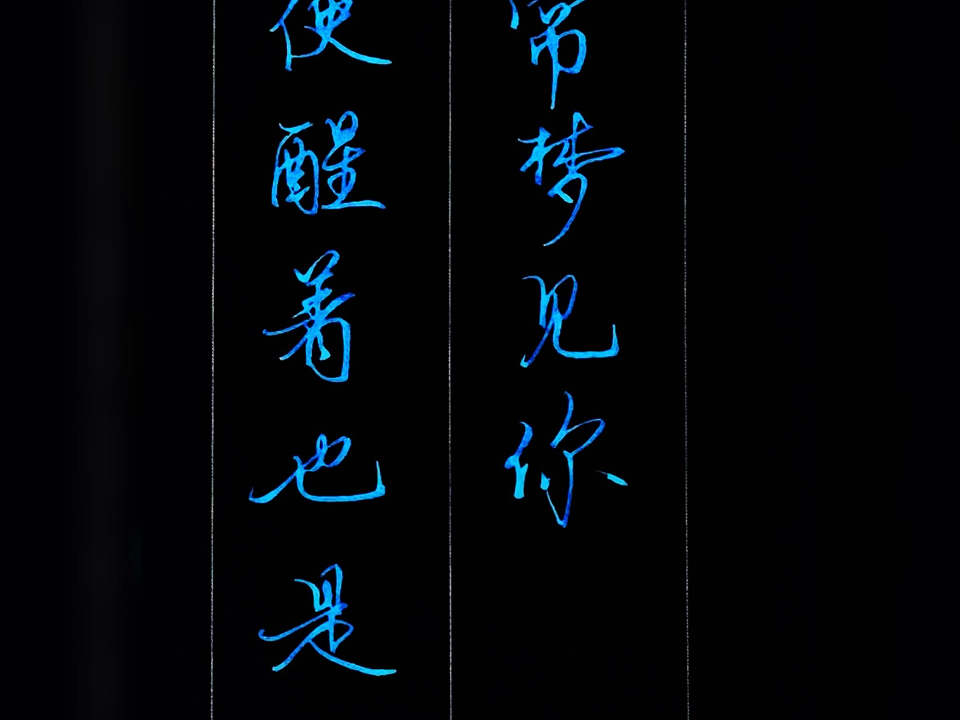 常梦见你
便醒着也是